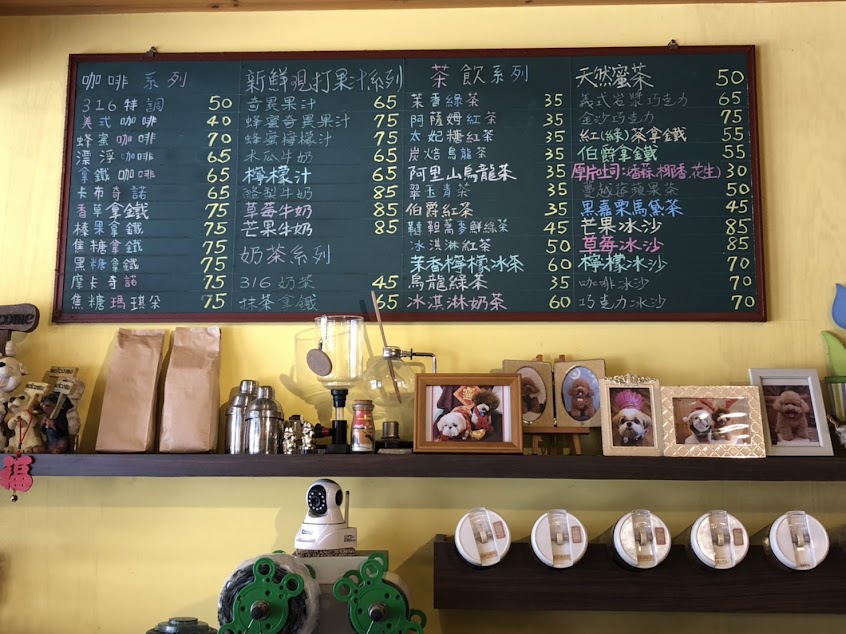 咖啡系列
316特調 50
美式咖啡 40
蜂蜜咖啡 70
漂浮咖啡 65
拿鐵咖啡 65
卡布奇諾 65
香草拿鐵 75
榛果拿鐵 75
焦糖拿鐵 75
黑糖拿鐵 75
摩卡奇諾 75
焦糖瑪琪朵 75
新鮮現打果汁系列
奇異果汁 65
蜂蜜奇異果汁 75
蜂蜜檸檬汁 75
木瓜牛奶 65
檸檬汁 65
酪梨牛奶 85
草莓牛奶 85
芒果牛奶 85
奶茶系列
316奶茶 45
抹茶拿鐵 65
茶飲系列
茉香綠茶 35
阿薩姆紅茶 35
太妃糖紅茶 35
炭焙烏龍茶 35
阿里山烏龍茶 35
翠玉青茶 35
伯爵紅茶 35
韃靼蕎麥鮮綠茶 45
冰淇淋紅茶 50
茉香檸檬冰茶 60
烏龍綠茶 35
冰淇淋奶茶 60
天然蜜茶 50
義式岩漿巧克力 65
金沙巧克力 75
紅(綠)茶拿鐵 55
伯爵拿鐵 55
厚片吐司:(香蒜.椰香.花生) 30
蔓越莓蘋果茶 50
黑嘉栗馬黛茶 45
芒果冰沙 85
草莓冰沙 85
檸檬冰沙 70
咖啡冰沙 70
巧克力冰沙 70
welcome
福